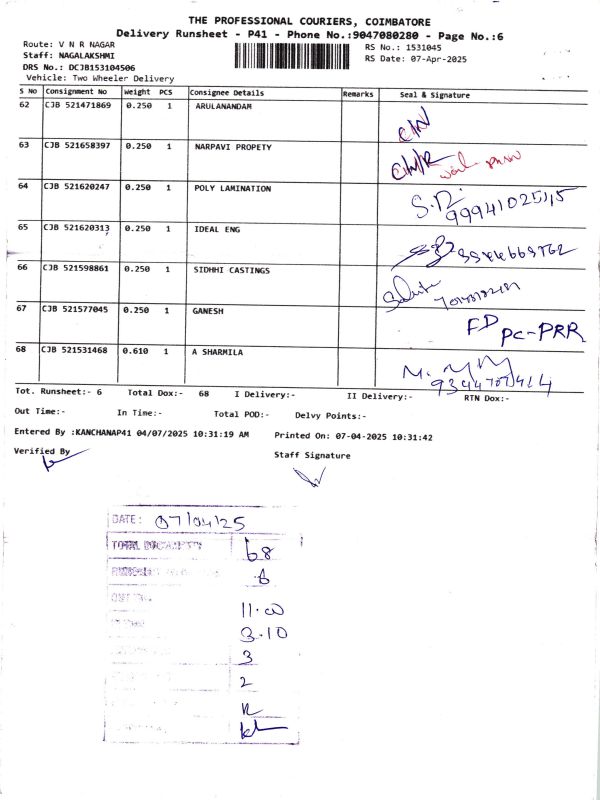 THE PROFESSIONAL COURIERS, COIMBATORE
Delivery Runsheet - P41 - Phone No.:9047080280 - Page No.:6
Route: V N R NAGAR
RS No.: 1531045
Staff: NAGALAKSHMI
RS Date: 07-Apr-2025
DRS No.: DCJB153104506
Vehicle: Two Wheeler Delivery
S No Consignment No Weight PCS Consignee Details Remarks Seal & Signature
62 CJB 521471869 0.250 1 ARULANANDAM
63 CJB 521658397 0.250 1 NARPAVI PROPETY
64 CJB 521620247 0.250 1 POLY LAMINATION
65 CJB 521620313 0.250 1 IDEAL ENG
66 CJB 521598861 0.250 1 SIDHHI CASTINGS
67 CJB 521577045 0.250 1 GANESH FD PC-PRR
68 CJB 521531468 0.610 1 A SHARMILA
Tot. Runsheet:- 6 Total Dox:- 68 I Delivery:- II Delivery:- RTN Dox:-
Out Time:- In Time:- Total POD:- Delvy Points:-
Entered By :KANCHANAP41 04/07/2025 10:31:19 AM Printed On: 07-04-2025 10:31:42
Verified By
Staff Signature
DATE: 07/04/25
TOTAL 68
6
11.00
3.10
3
2